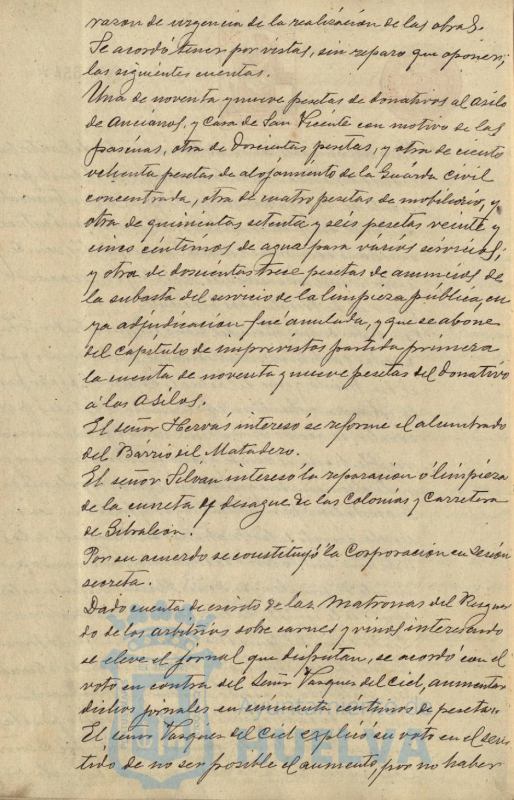 razon de urgencia de la realización de las obras.
Se acordó tener por vistas, sin reparo que oponer,
las siguientes cuentas.
Una de noventa y nueve pesetas de donativos al Asilo
de Ancianos, y Casa de San Vicente con motivo de las
pascuas, otra de doscientas pesetas, y otra de ciento
ochenta pesetas de alojamiento de la Guardia civil
concentrada, otra de cuatro pesetas de mobiliario, y
otra de quinientas setenta y seis pesetas veinte y
cinco céntimos de agua para varios servicios;
y otra de doscientas trece pesetas de anuncios de
la subasta del servicio de la limpieza pública, cu
ya adjudicación fué anulada, y que se abone
del capitulo de imprevistos partida primera
la cuenta de noventa y nueve pesetas del donativo
á los Asilos.
El señor Hervás interesó se reforme el alumbrado
del Bárrio del Matadero.
El señor Silván interesó la reparacion ó limpieza
de la cuneta de desague de las Colonias y Carretera
de Gibraleon.
Por su acuerdo se constituyó la Corporación en Sesión
secreta.
Dado cuenta de escrito de las Matronas del Resguar
do de los arbitrios sobre carnes y vinos interesando
se eleve el jornal que disfrutan, se acordó con el
voto en contra del Señor Vazques del Cid, aumentar
dichos jornales en cincuenta céntimos de peseta.
El señor Vazques del Cid explicó su voto en el sen
tido de no ser posible el aumento, por no haber
HUELVA